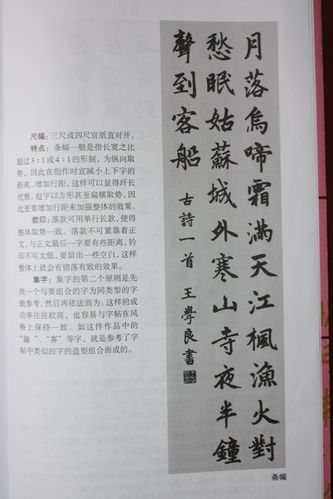 尺幅：三尺或四尺宣纸直对开。
特点：条幅一般是指长宽之比
超过3∶1或4∶1的形制，为纵向取
势，因此在创作时宜减小上下字的
距离，增加行距，这样可以显得纤长
优雅。赵字以方形甚至扁横取势，因
此更要增加行距来加强整体的效果。
款印：落款可用单行长款，使得
整体取势一致。落款不可紧靠着正
文，与正文最后一字要有些距离，钤
印不可太低，要留出一些空白，这样
整体上就会有错落有致的效果。
集字：集字的第二个原则是先
找一个与要组合的字为同类型的字
做参考，然后再依法而为。这样的成
功率往往较高，也容易与字帖在风
格上保持一致。如这件作品中的
“鐘”、“客”等字，就是参考了字
帖中类似的字的造型组合而成的。
月落烏啼霜滿天江楓漁火對
愁眠姑蘇城外寒山寺夜半鐘
聲到客船
古詩一首 王學良書
条幅